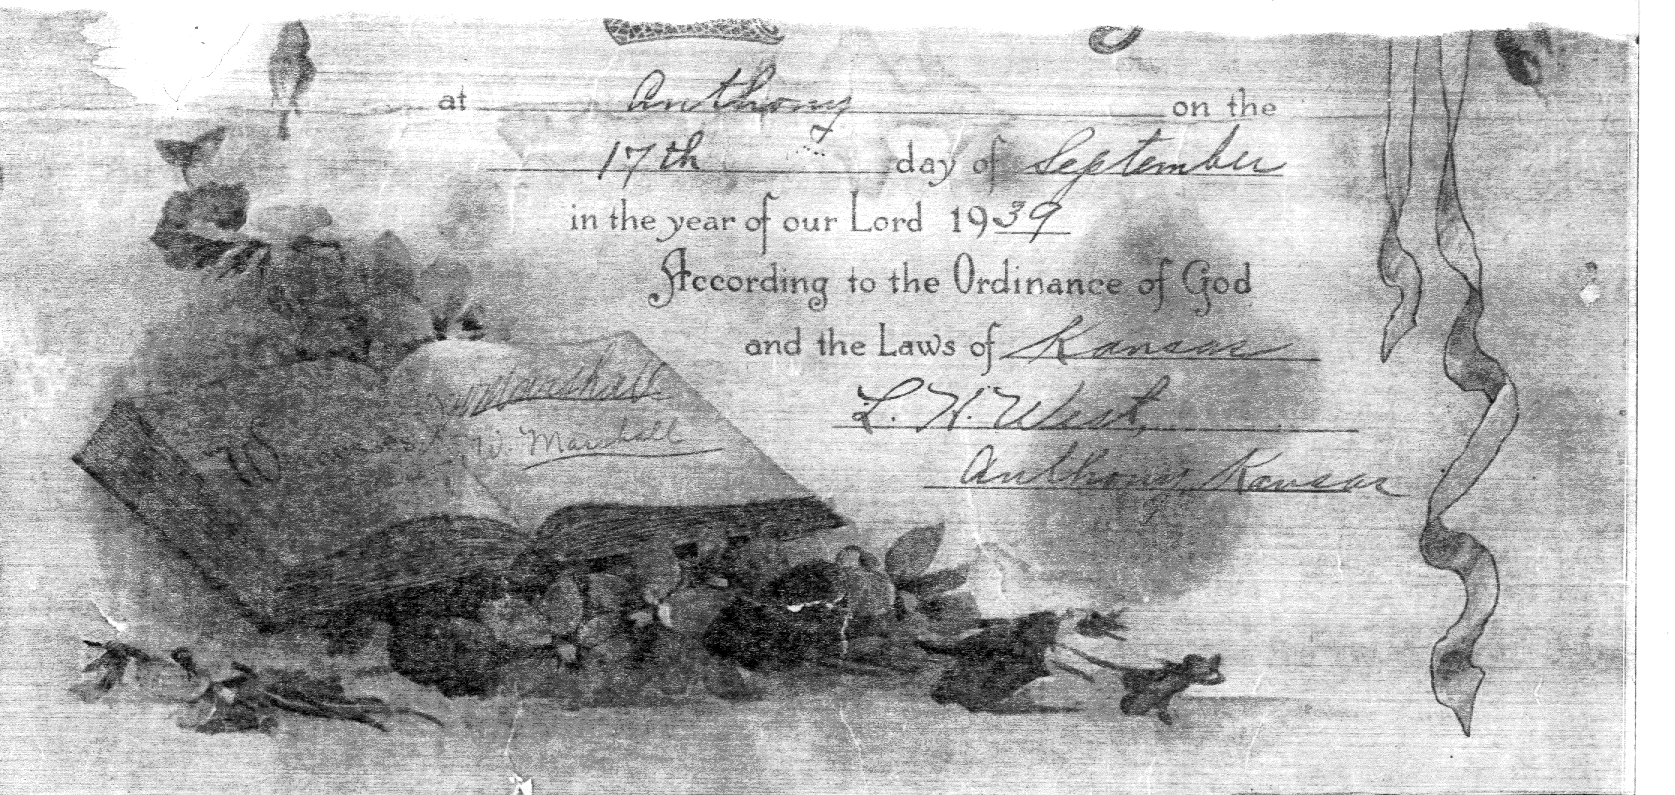 at Anthony on the
17th day of September
in the year of our Lord 1939
According to the Ordinance of God
and the Laws of Kansas
L. H. West,
Anthony, Kansas
Marshall
W. Marshall